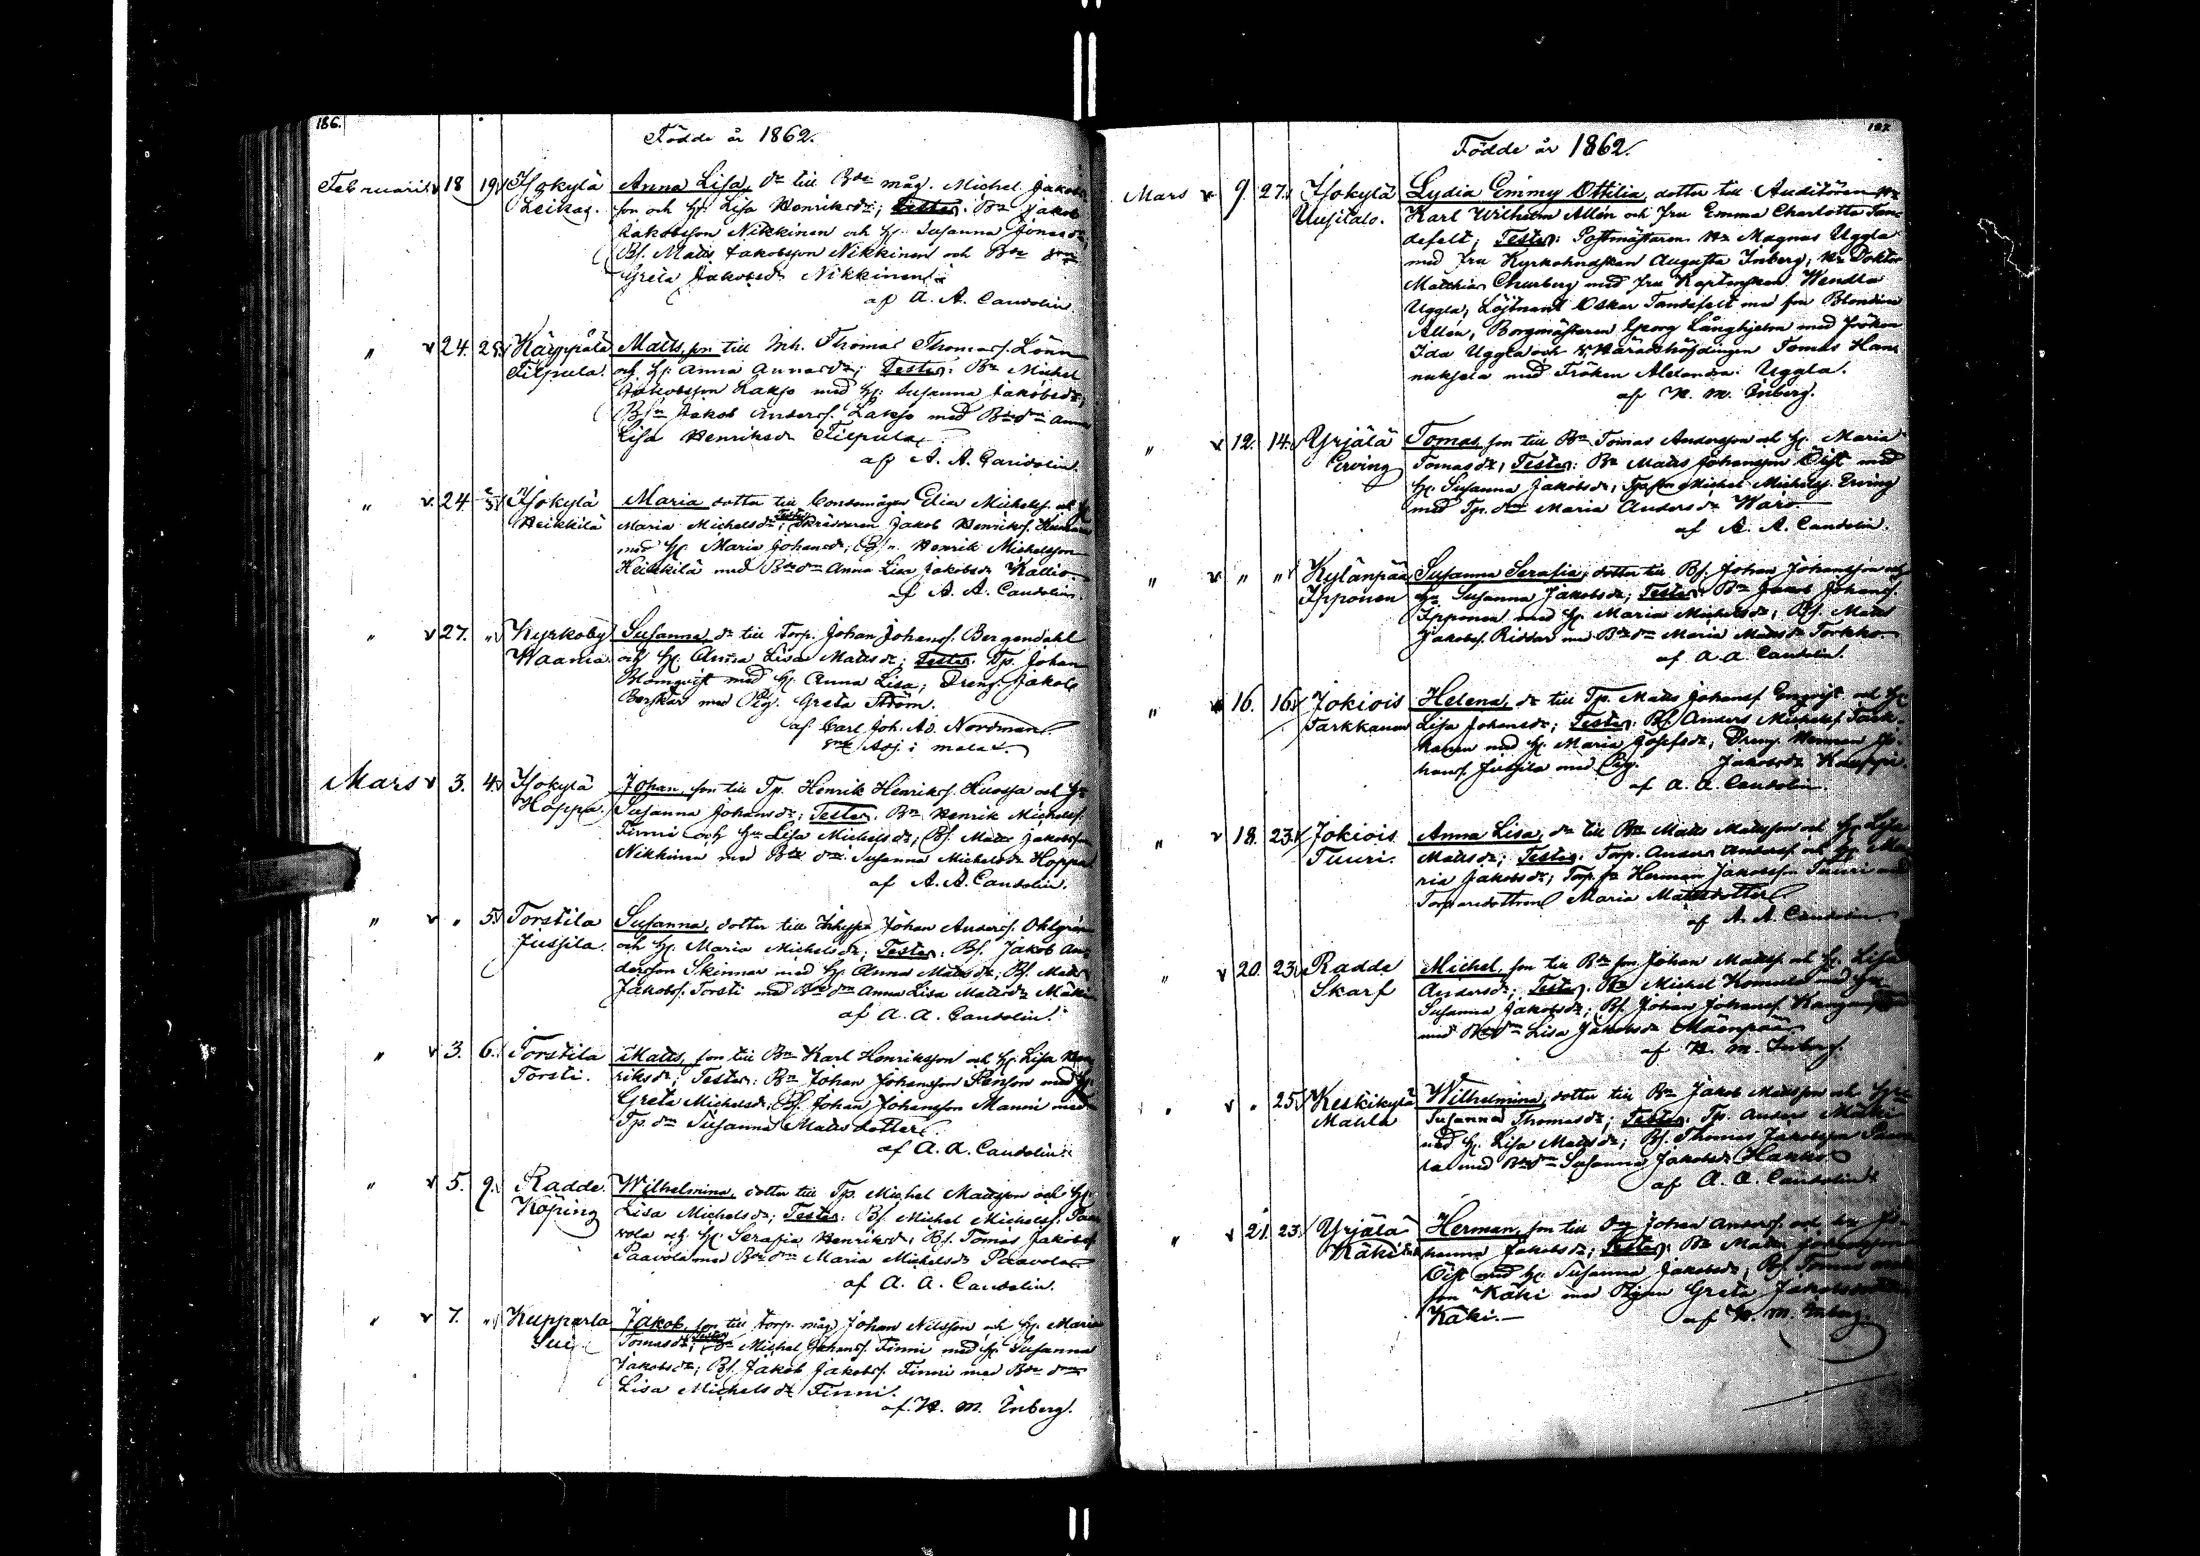 186.
Födde år 1862.
Februari v 18 19 Isokylä Anna Lisa, dr till Bde måg. Michel Jakobs
Leikas. son och H: Lisa Henriksdr; Testes: Bn Jakob
Jakobsson Nikkinen och H: Susanna Jonasdr,
Bs. Matts Jakobsson Nikkinen och Bde
Greta Jakobsdr Nikkinen.
af A. A. Candolin
" v 24. 25 Käyppälä Matts, son till Inh. Thomas Thomass. Lönn
Tilpula. och H: Anna Annasdr; Testes: Bn Michel
Jakobsson Laxjo med H: Susanna Jakobsdr,
Jakob Anderss. Laxjo med Anna
Lisa Henriksdr Tilpula.
af A. A. Candolin.
" v. 24 Isokylä Maria dotter till Elias Michelss. och
Heikkilä Maria Michelsdr; Testes Skräddaren Jakob Henrikss.
med H: Maria Johansdr; Henrik Michelsson
Heikkilä med Anna Lisa Jakobsdr Kallio.
af A. A. Candolin.
" v 27. " Kyrkoby Susanna, dr till Torp. Johan Johanss. Bergendahl
Waania och H: Anna Lisa Mattsdr; Testes: Tp. Johan
Blomqvist med H: Anna Lisa; Dreng. Jakob
Berskär med Pig. Greta Ström.
af Carl Joh. Ad. Nordman.
Mars v 3. 4. Isokylä Johan, son till Tp. Henrik Henrikss. Huossa och H:
Hoppa. Susanna Johansdr; Testes: Bn Henrik Michelss.
Finni och Lisa Michelsdr; Bs. Matts Jakobsson
Nikkinen med Susanna Michelsdr Hoppa
af A. A. Candolin.
" v " 5. Torstila Susanna, dotter till Johan Anderss. Ohlgren
Jussila. och H: Maria Michelsdr; Testes: Bs. Jakob An-
dersson Skinnar med H: Anna Mattsdr, Bs. Matts
Jakobss. Torsti med Anna Lisa Mattsdr Mäki
af A. A. Candolin.
" v 3. 6. Torstila Matts, son till Bn Karl Henriksson och H: Lisa Hen
Torsti. riksdr; Testes: Bn Johan Johansson Penson med H:
Greta Michelsdr; Bs. Johan Johansson Manni med
Tp. Susanna Mattsdotter.
af A. A. Candolin.
" v 5. 9. Radde. Wilhelmina, dotter till Tp. Michel Mattsson och H:
Köping Lisa Michelsdr; Testes: Bs. Michel Michelss. Paa
vola och H: Serafia Henriksdr, Bs. Tomas Jakobss
Paavola med Maria Michelsdr Paavola
af A. A. Candolin.
" v 7. " Kupparla Jakob, son till torp. måg Johan Nilsson och H: Maria
Sui Tomasdr; Testes Michel Johanss. Finni med H: Susanna
Jakobsdr; Bs. Jakob Jakobss. Finni med
Lisa Michelsdr Finni.
af H. M. Inberg.
187
Födde år 1862.
Mars v 9. 27. Isokylä Lydia Emmy Ottilia, dotter till Auditören Hr
Uusitalo. Karl Wilhelm Allén och fru Emma Charlotta Tan-
defelt; Testes: Postmästaren Hr Magnus Uggla
med fru Kyrkoherdskan Augusta Inberg; Hr Doktor
Matthias Churberg med fru Kaptenskan Wendla
Uggla; Löjtnant Oskar Tandefelt med frn Blondina
Allén, Borgmästaren Georg Långhjelm med fröken
Ida Uggla och Häradshöfdingen Tomas Han
nuksela med Fröken Alexandra Uggla.
af H. M. Inberg.
" v 12. 14. Yrjälä Tomas, son till Bn Tomas Andersson och H: Maria
Erving Tomasdr; Testes: Bn Matts Johansson Öist med
H: Susanna Jakobsdr, Michel Michelss. Erving
med Tp. Maria Andersdr Waro.
af A. A. Candolin.
" v " " Kylänpää Susanna Serafia, dotter till Bs. Johan Johansson och
Ipponen Susanna Jakobsdr; Testes: Bn Jakob Johanss.
Ipponen med H: Maria Michelsdr; Bs. Matts
Jakobss. Riddar med Maria Mattsdr Torkko.
af A. A. Candolin.
" 16. 16. Jokiois Helena, dr till Tp. Matts Johanss. Engqvist och H:
Tarkkanen Lisa Johansdr; Testes: Bs. Anders Michelss. Tark-
kanen med H: Maria Josefsdr; Dreng. Herman Jo-
hanss. Jussila med Pig. Jakobsdr Kauppi.
af A. A. Candolin.
" v 18. 23. Jokiois Anna Lisa, dr till Bn Matts Mattsson och H: Lisa
Tuuri. Mattsdr; Testes: Torp. Anders Anderss och H: Ma
ria Jakobsdr; Herman Jakobsson Tuuri med
Torparedottren Maria Mattsdotter.
af A. A. Candolin.
" v 20. 23. Radde Michel, son till Johan Mattss. och H: Lisa
Skarf Andersdr; Testes: Michel med
Susanna Jakobsdr; Bs. Johan Johanss.
med Lisa Jakobsdr Mäenpää
af H. M. Inberg.
" v " 25. Keskikylä Wilhelmina, dotter till Bn Jakob Mattsson och H:
Mattila Susanna Thomasdr; Testes: Tp. Anders Mäki
med H: Lisa Mattsdr; Bs. Thomas Jakobsson
med Susanna Jakobsdr Hanko
af A. A. Candolin.
" v 21. 23. Yrjälä Herman, son till Johan Anderss. och Jo-
Käki hanna Jakobsdr; Testes: Bn Matts Johansson
Öist med H: Susanna Jakobsdr, Bs. Tomas
son Käki med Pigan Greta Jakobsdotter
Käki.
af H. M. Inberg.